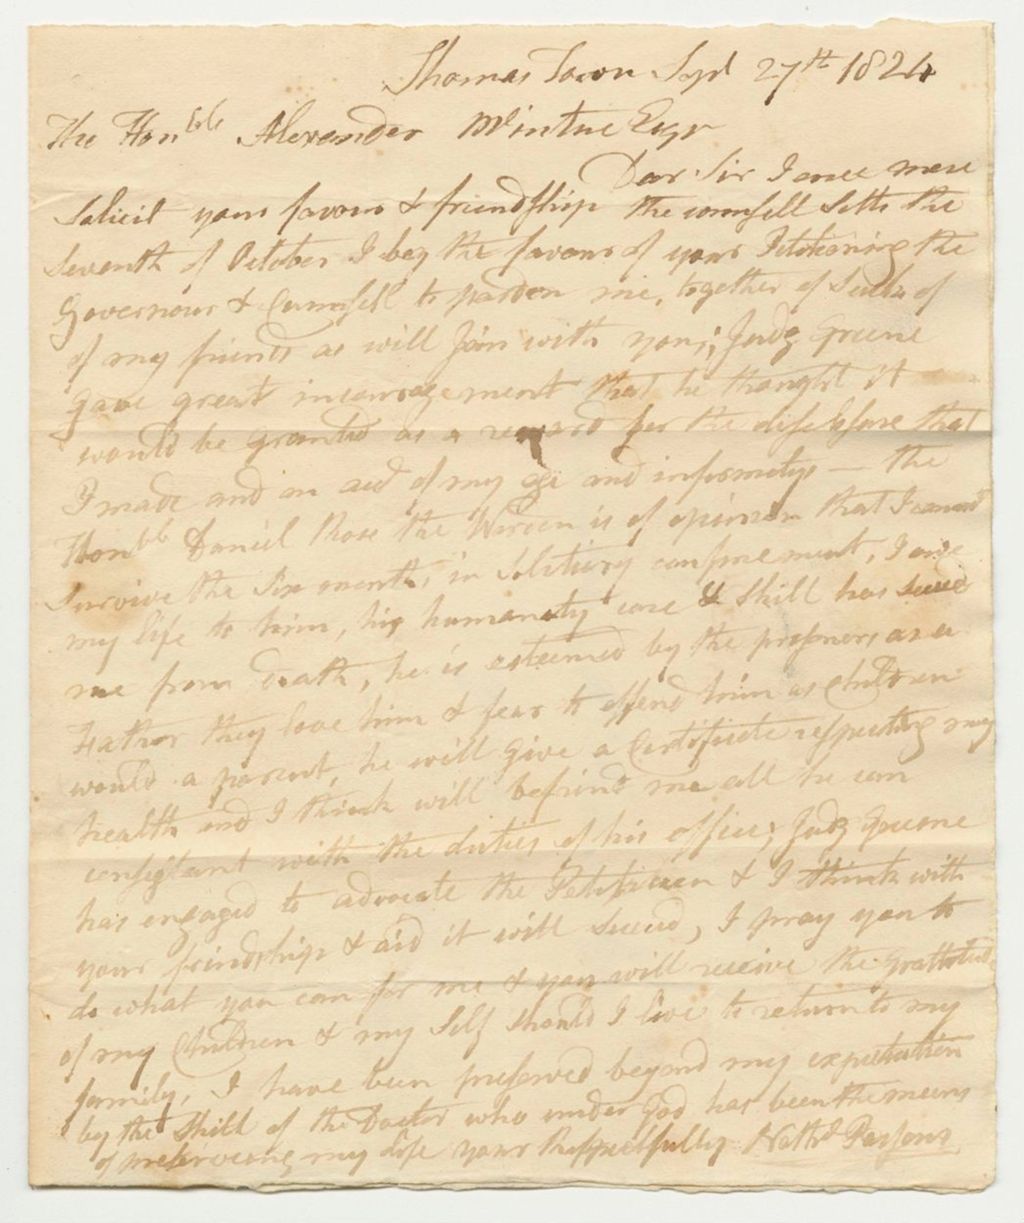 Thomas Town Sept 27th 1824
The Honble Alexander McIntire Esqr
Dear Sir I once more
Solicit your favour & friendship the counsell Setts the
Seventh of October I beg the favour of your Petitioning the
Governour & Counsell to pardon me, together of Such of
of my friends as will Join with you; Judg Greene
gave great incouragement that he thought it
would be granted as a reward for the disclosure that
I made and on acct of my age and infirmetys — the
Honble Daniel Rose the Warden is of opinion that I cannot
survive the Six months in Solitary confinement, I owe
my life to him, his humanety care & Skill has saved
me from death, he is esteemed by the prisoners as a
Father they love him & fear to offend him as Children
would a parent, he will give a Certificate respecting my
health and I think will befrind me all he can
consistant with the duties of his office; Judg Greene
has engaged to advocate the Petition & I think with
your frindship & aid it will succeed, I pray you to
do what you can for me & you will receive the grattitud
of my Children & my Self should I live to return to my
family, I have been preserved beyond my expectation
by the Skill of the Doctor who under god has been the means
of preserveing my life your Respectfully Nathl Parsons